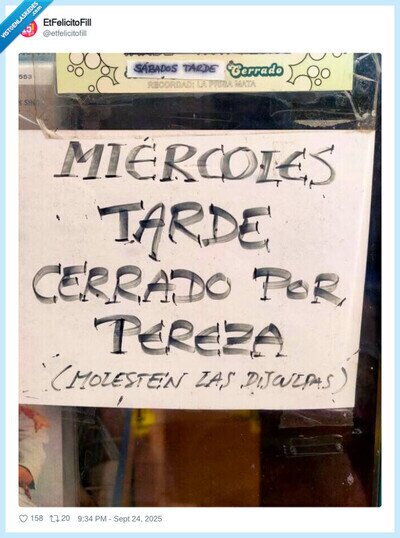 VISTOENLASREDES.COM
EtFelicitoFill
@etfelicitofill
SÁBADOS TARDE Cerrado
RECORDAD: LA PRISA MATA
MIÉRCOLES
TARDE
CERRADO POR
PEREZA
(MOLESTEN LAS DISCULPAS)
158 20 9:34 PM - Sept 24, 2025